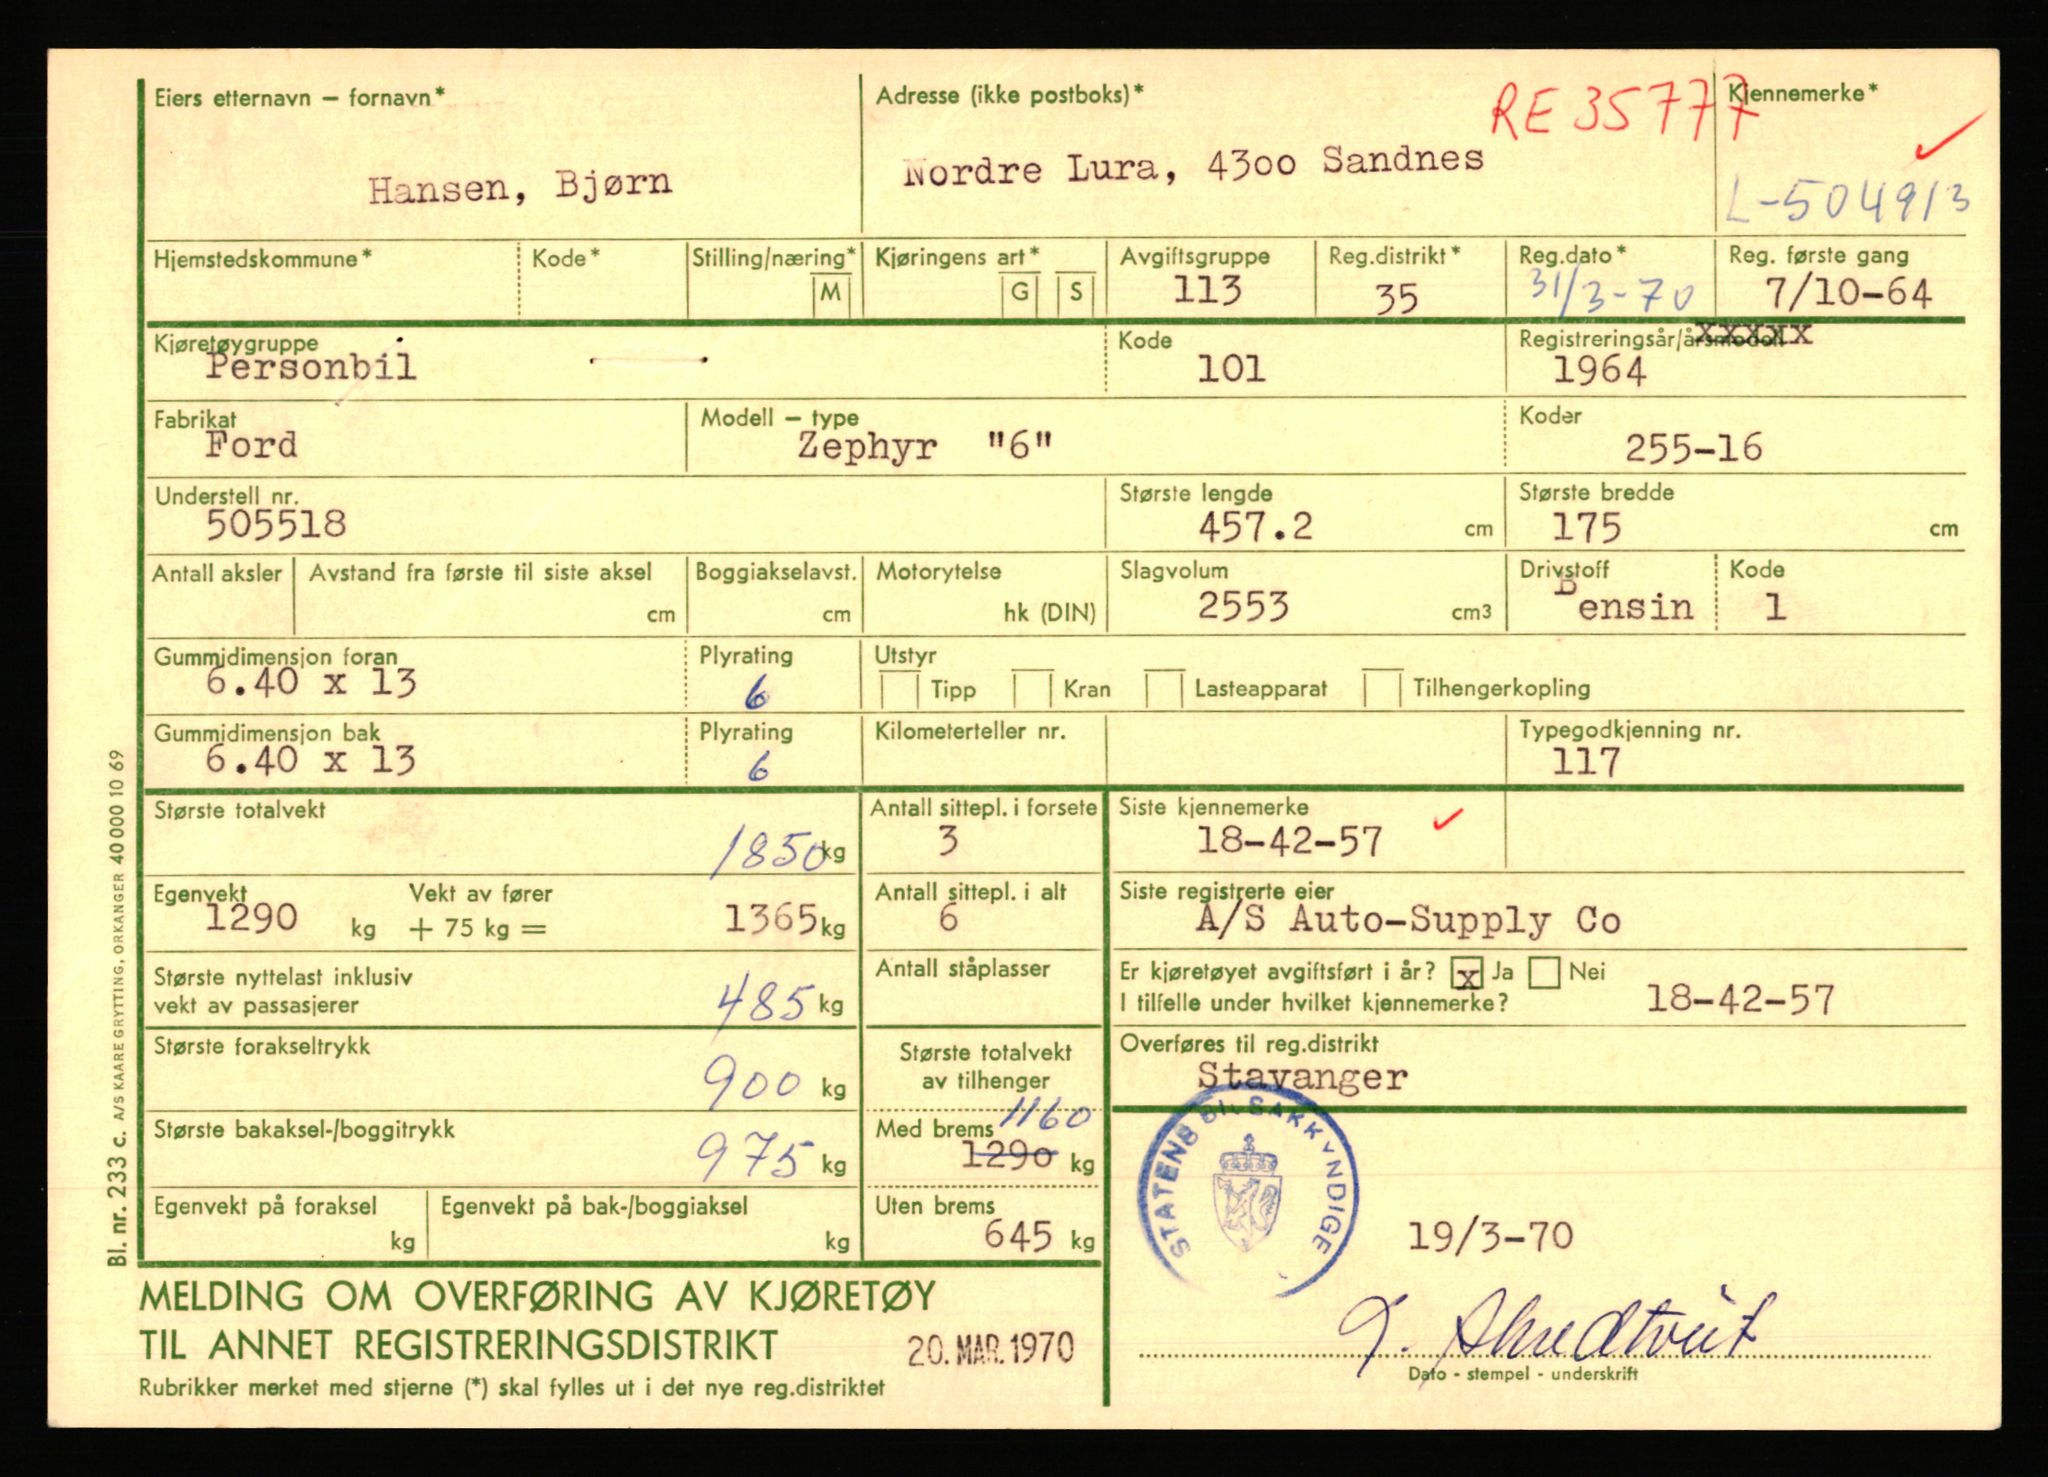 Eiers etternavn – fornavn*
Hansen, Bjørn
Adresse (ikke postboks)*
Nordre Lura, 4300 Sandnes
RE 35777
Kjennemerke*
L-504913
Hjemstedskommune*
Kode*
Stilling/næring*
M
Kjøringens art*
G S
Avgiftsgruppe
113
Reg.distrikt*
35
Reg.dato*
31/3-70
Reg. første gang
7/10-64
Kjøretøygruppe
Personbil
Kode
101
Registreringsår/årsmodell
1964
Fabrikat
Ford
Modell – type
Zephyr "6"
Koder
255-16
Understell nr.
505518
Største lengde
457.2 cm
Største bredde
175 cm
Antall aksler
Avstand fra første til siste aksel
cm
Boggiakselavst.
cm
Motorytelse
hk (DIN)
Slagvolum
2553 cm3
Drivstoff
Bensin
Kode
1
Gummidimensjon foran
6.40 x 13
Plyrating
6
Utstyr
Tipp Kran Lasteapparat Tilhengerkopling
Gummidimensjon bak
6.40 x 13
Plyrating
6
Kilometerteller nr.
Typegodkjenning nr.
117
Største totalvekt
1850 kg
Antall sittepl. i forsete
3
Siste kjennemerke
18-42-57
Egenvekt
1290 kg
Vekt av fører
+ 75 kg =
1365 kg
Antall sittepl. i alt
6
Siste registrerte eier
A/S Auto-Supply Co
Største nyttelast inklusiv
vekt av passasjerer
485 kg
Antall ståplasser
Er kjøretøyet avgiftsført i år? x Ja Nei
I tilfelle under hvilket kjennemerke?
18-42-57
Største forakseltrykk
900 kg
Største totalvekt
av tilhenger
Overføres til reg.distrikt
Stavanger
Største bakaksel-/boggitrykk
975 kg
Med brems
1160
1290 kg
Egenvekt på foraksel
kg
Egenvekt på bak-/boggiaksel
kg
Uten brems
645 kg
STATENS BILSAKKYNDIGE
19/3-70
MELDING OM OVERFØRING AV KJØRETØY
TIL ANNET REGISTRERINGSDISTRIKT
20. MAR. 1970
Rubrikker merket med stjerne (*) skal fylles ut i det nye reg.distriktet
Dato - stempel - underskrift
Bl. nr. 233 c. A/S KAARE GRYTTING, ORKANGER 40 000 10 69